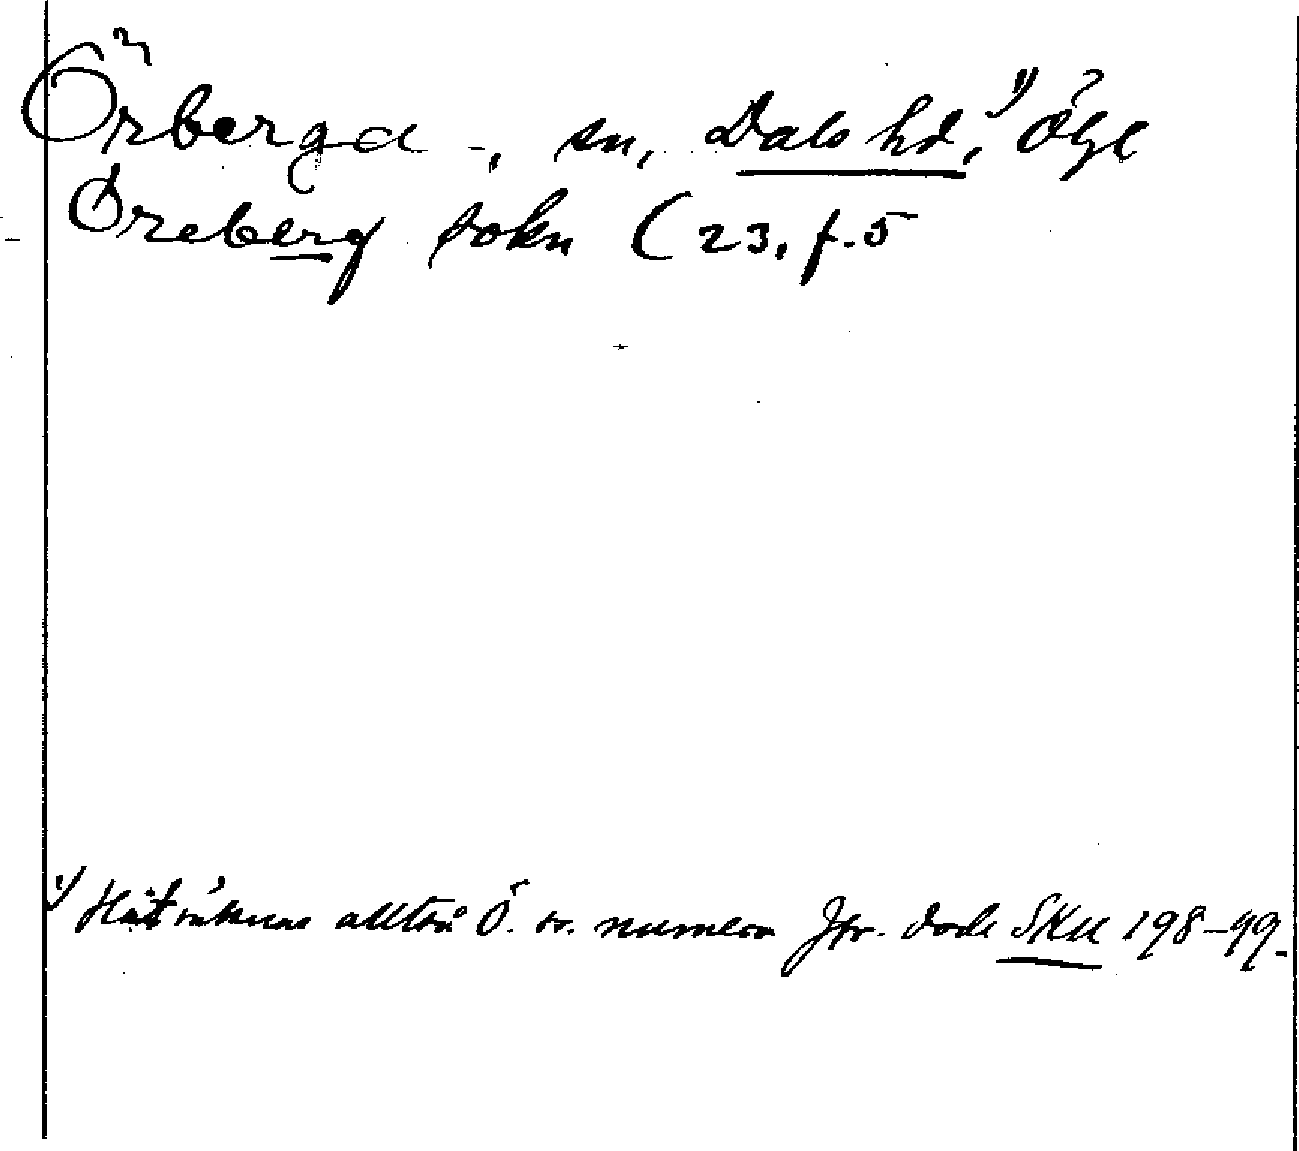 Örberga, sn, Dals hd,¹⁾ Ögl
Öreberg sokn (23, f. 5
¹⁾ Hit räknas alltså Ö. sn. numera Jfr. dock SKU 198–99.